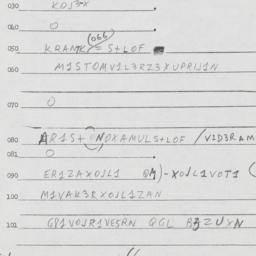 030 KOJ3XX
040 O
050 KRAMK(066)= S+LOF
060 M1STOMV1L3RZ3XUPRIJ1N
070 O
080 AR1S+ NOXAMULS+LOF /V2D3RAM
081 O
090 ER1ZAXOJL1 )-XOJL1VOT1 (
090 M1VAK3RXOJL1ZAN
100
101 GP1VOJR1VESRN QGL ZUXN